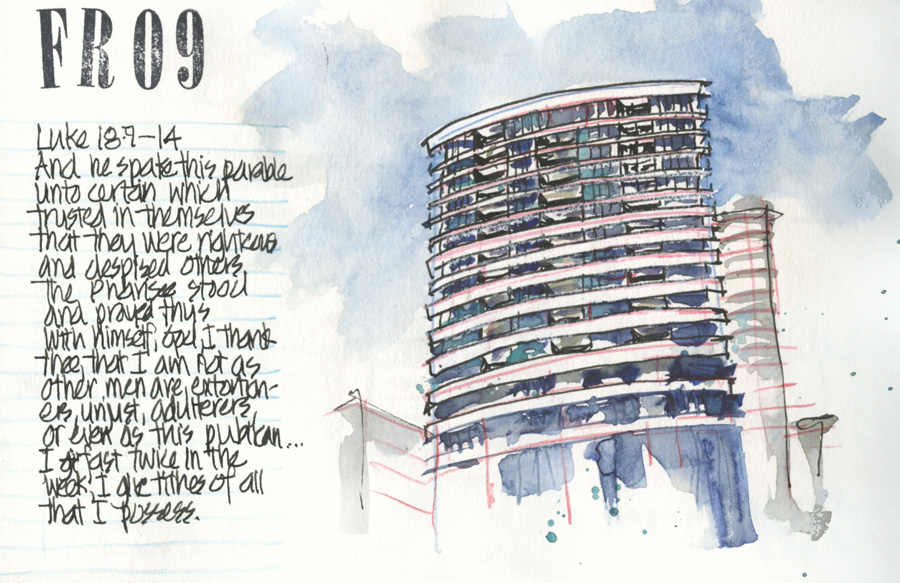 FR09
Luke 18:9-14
And he spake this parable
unto certain which
trusted in themselves
that they were righteous
and despised others.
The Pharisee stood
and prayed thus
with himself, God, I thank
thee, that I am not as
other men are, extortion-
ers, unjust, adulterers,
or even as this publican...
I fast twice in the
week, I give tithes of all
that I possess.